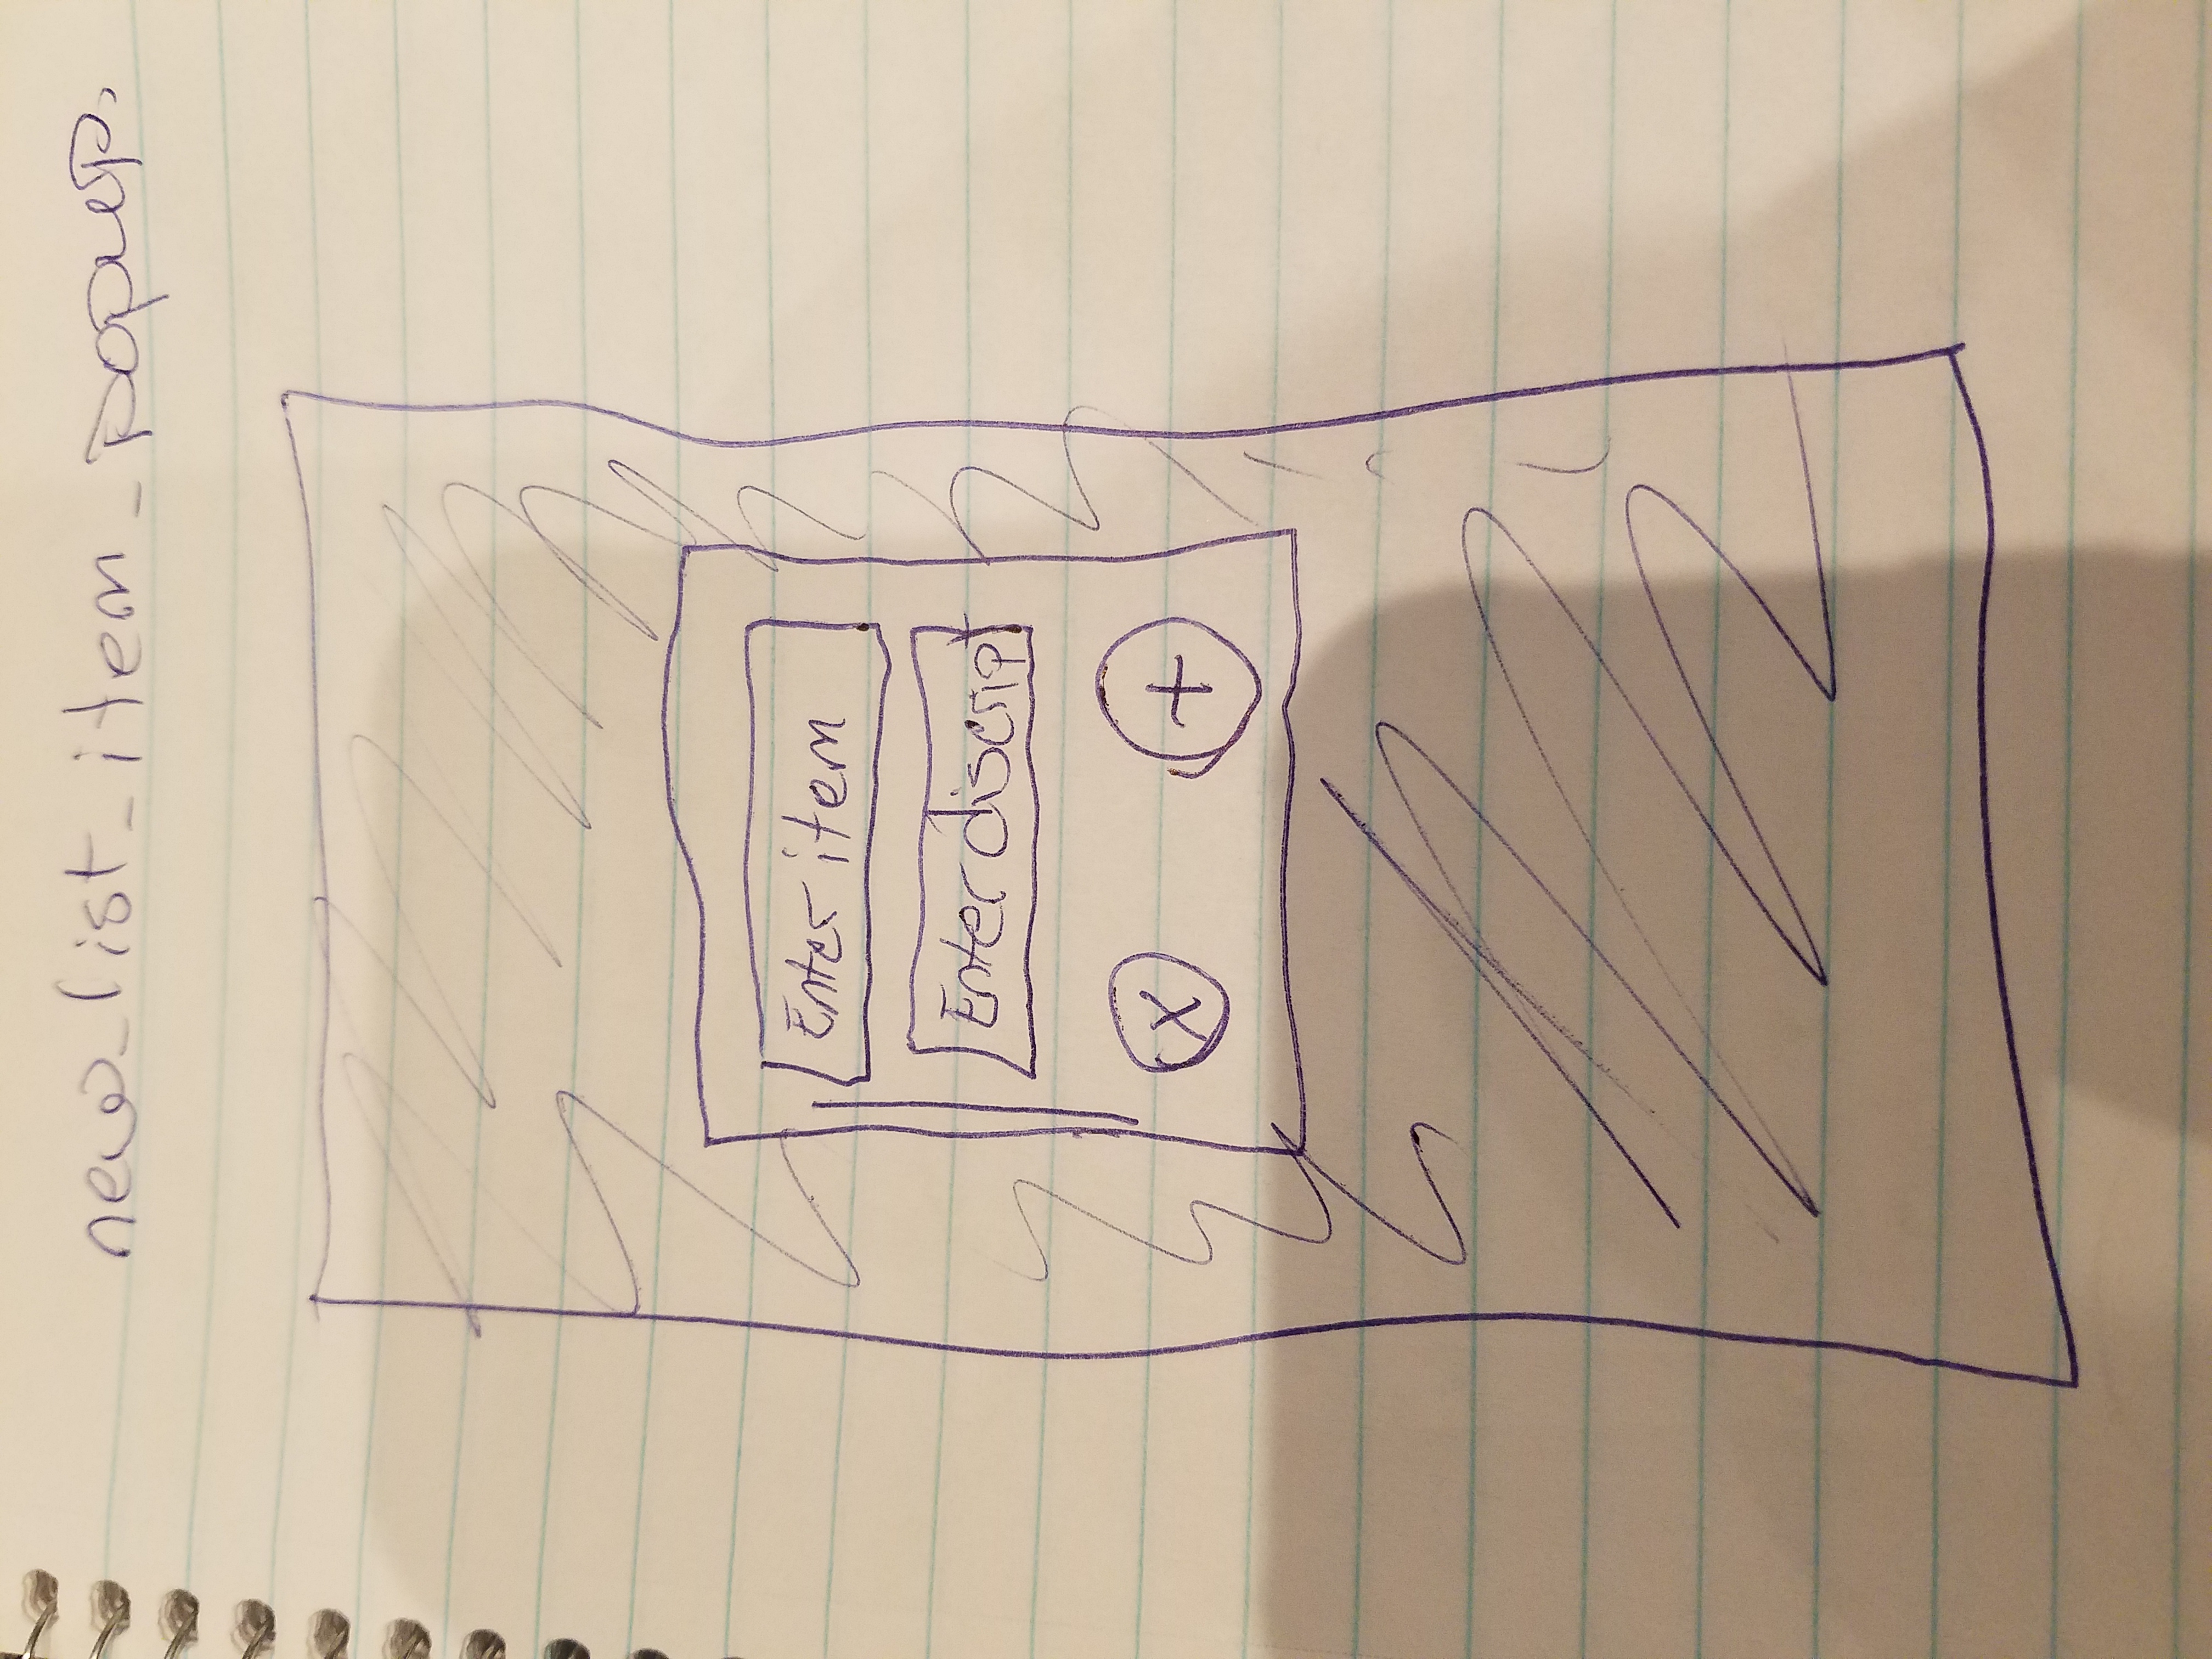 new_list_item_popup.
Enter item
Enter discript
X
+